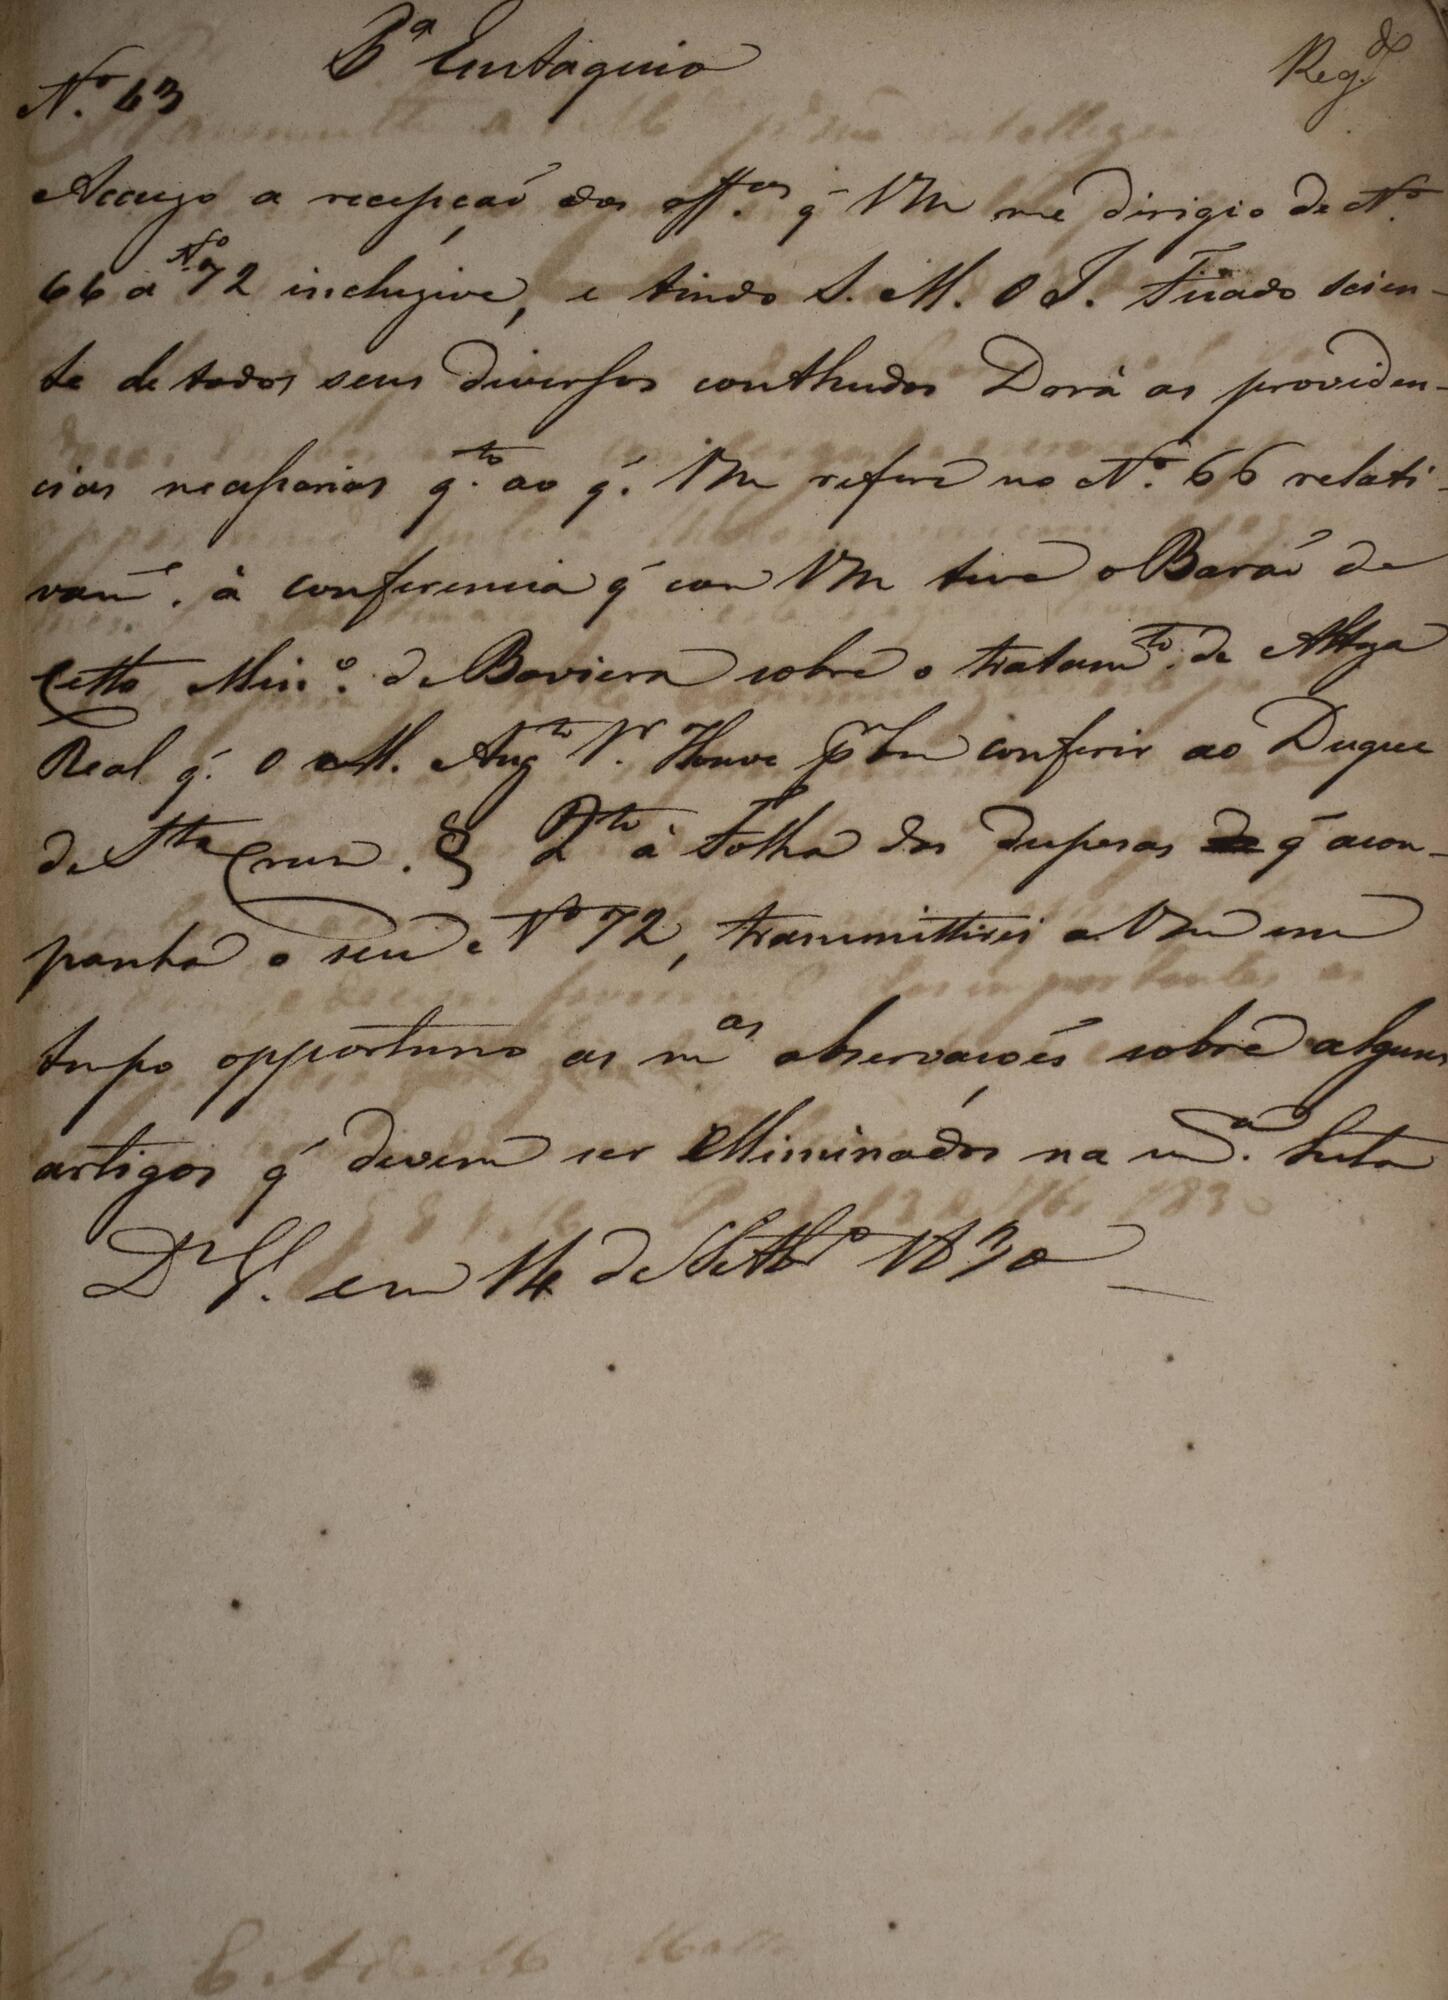 Pª Eustaquio
Reg.do
Nº. 63
Accuzo a recepção dos off.os q̃ VM me dirigio de Nº.
66 a Nº 72 incluzive, e tendo S. M. O I. Ficado scien-
te de todos seus diversos conthudos Dará as providen-
cias necessarias q.to ao q̃. VM refere no Nº. 66 relati-
vam.e à conferencia q̃ com VM teve o Barão de
Cetto Min.º de Baviera sobre o tratam.to de Alteza
Real q̃. O M. Aug.to Sr. Houve p.r bem conferir ao Duque
de S.ta Cruz. § Q.to à Folha das despesas q̃ acom-
panha o seu Nº 72, transmittirei a VM em
tempo opportuno as m.as observações sobre alguns
artigos q̃ devem ser elliminados na m.ª
D.s G.e em 14 de Setbrº 1830